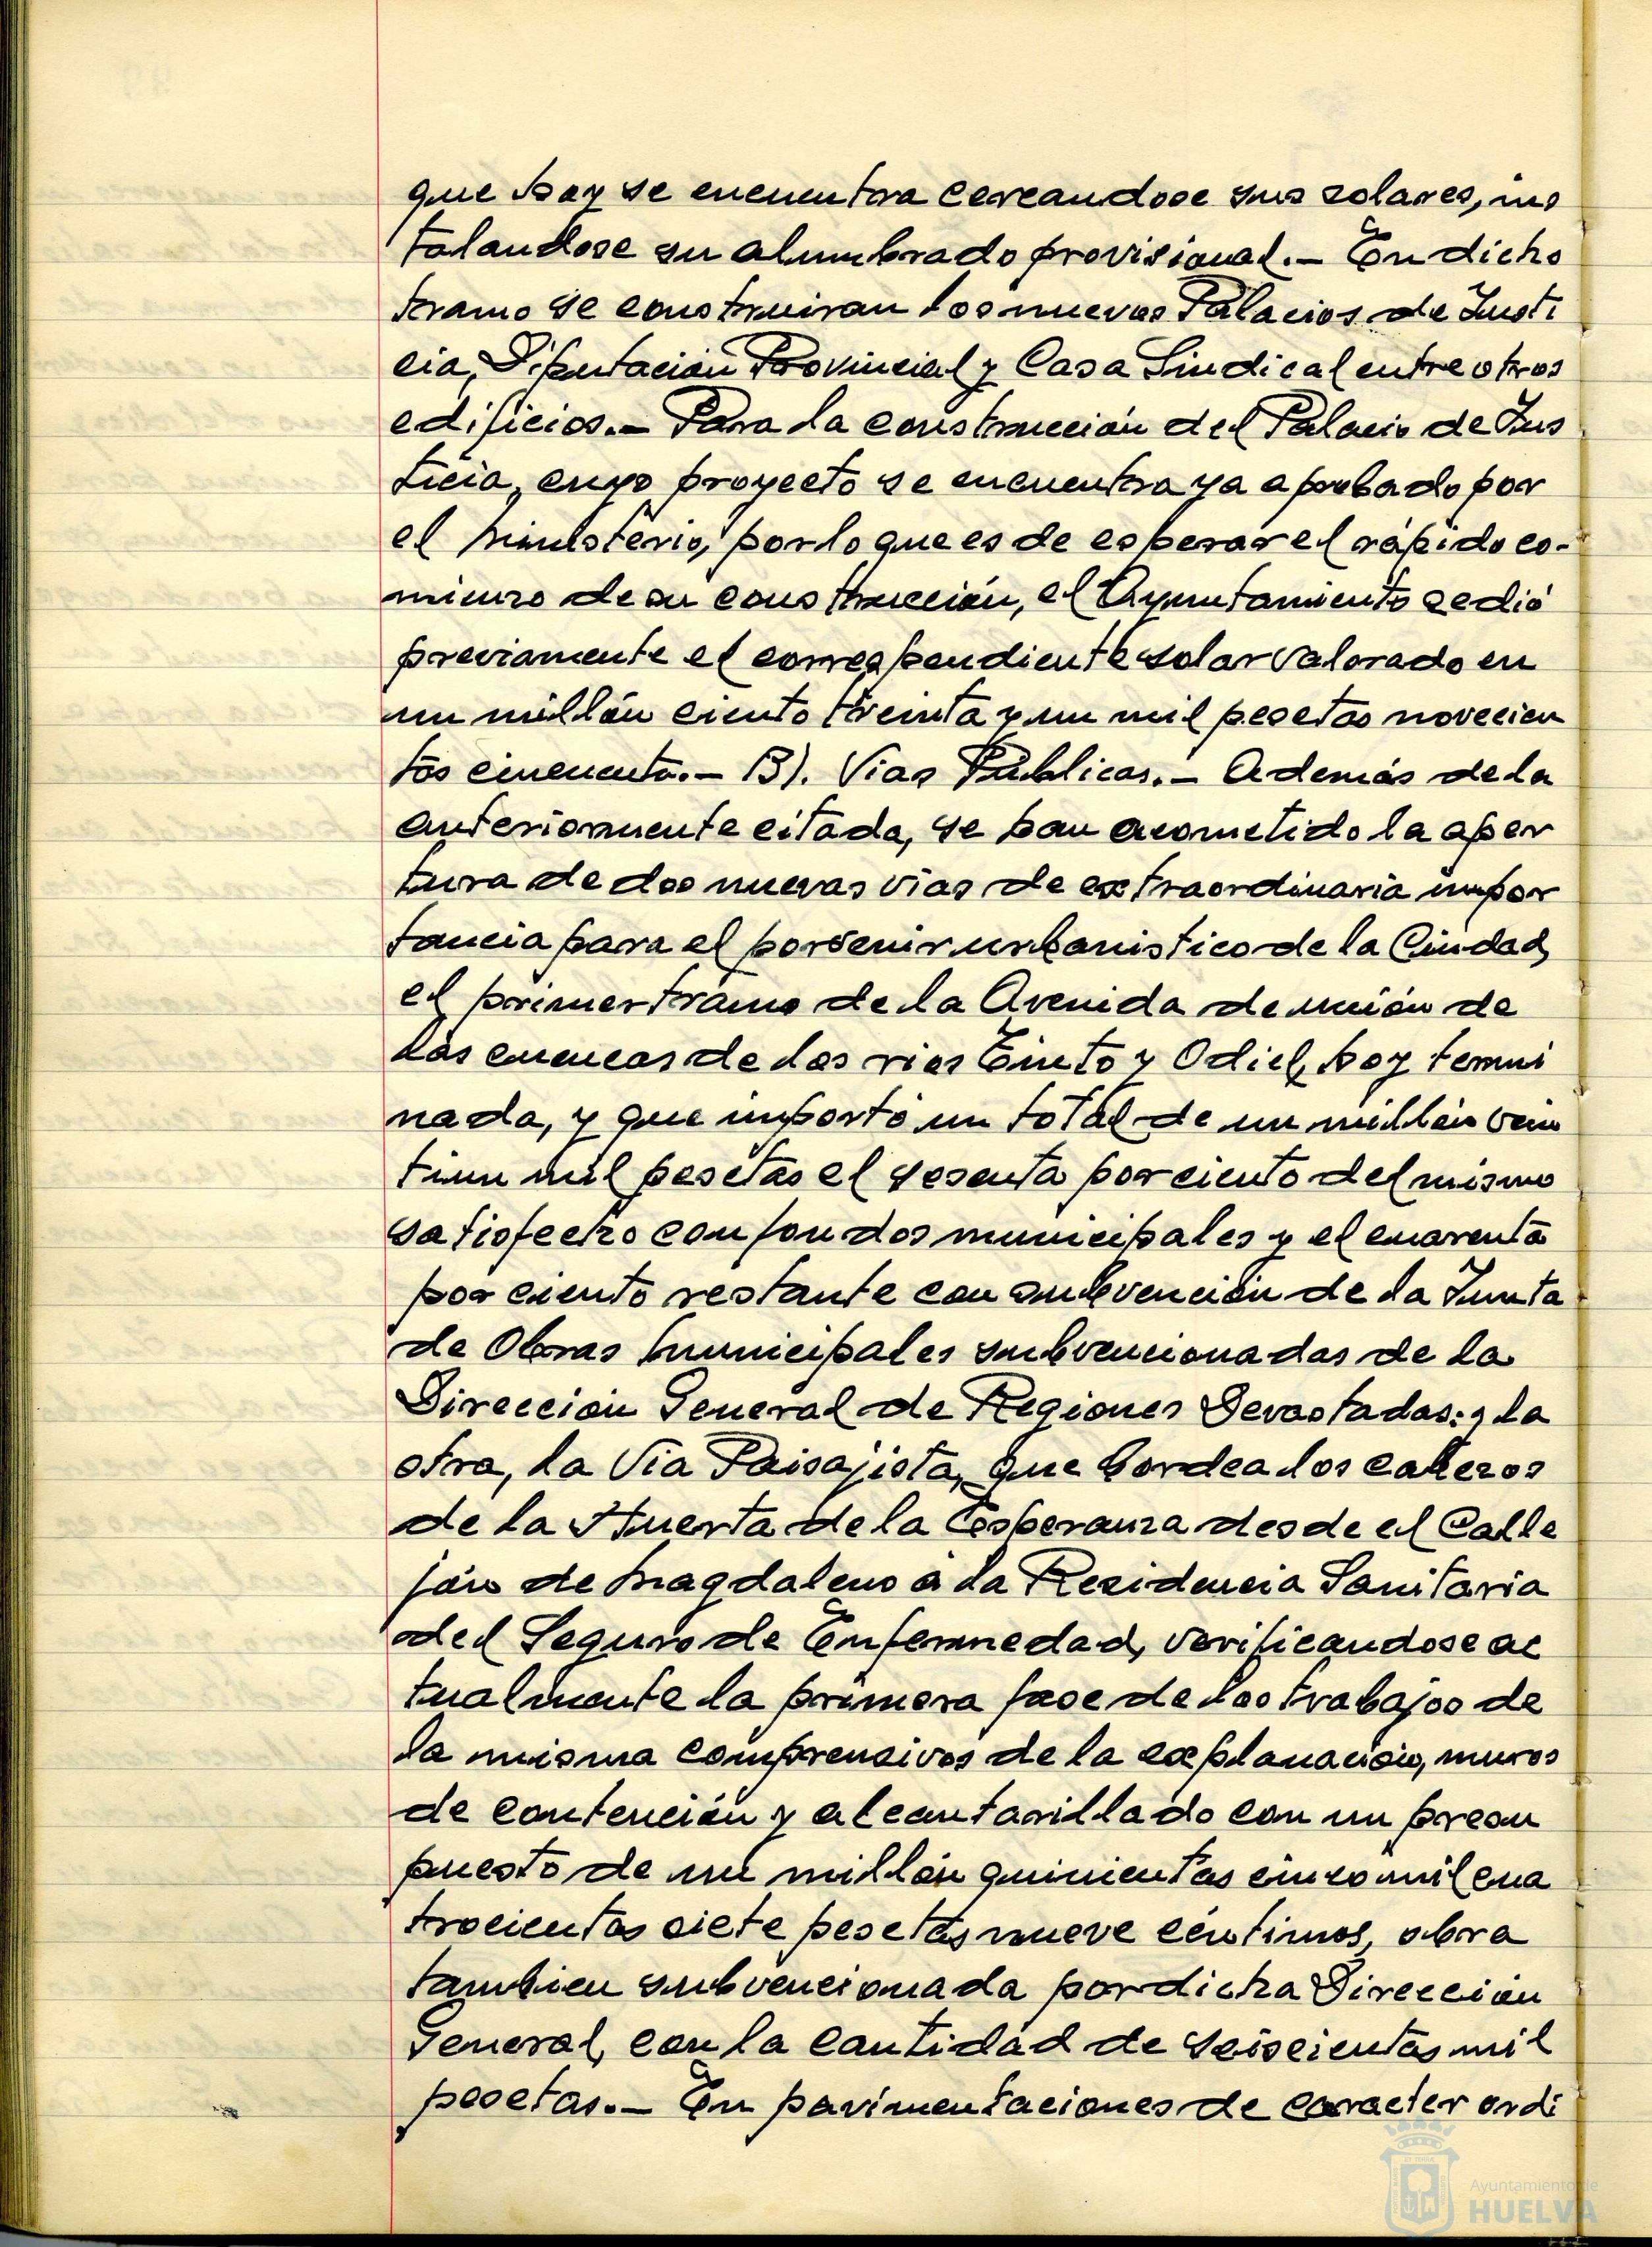 que hoy se encuentra cercandose sus solares, ins
talandose su alumbrado provisional.- En dicho
tramo se construiran los nuevos Palacios de Justi
cia, Diputación Provincial y Casa Sindical entre otros
edificios.- Para la construcción del Palacio de Jus
ticia, cuyo proyecto se encuentra ya aprobado por
el Ministerio, por lo que es de esperar el rápido co-
mienzo de su construcción, el Ayuntamiento cedió
previamente el correspondiente solar valorado en
un millón ciento treinta y un mil pesetas novecien
tos cincuenta.- B). Vias Públicas.- Además de la
anteriormente citada, se han acometido la aper
tura de dos nuevas vias de extraordinaria impor
tancia para el porvenir urbanistico de la Ciudad,
el primer tramo de la Avenida de unión de
las cuencas de los rios Tinto y Odiel, hoy termi
nada, y que importó un total de un millón vein
tiun mil pesetas el sesenta por ciento del mismo
satisfecho con fondos municipales y el cuarenta
por ciento restante con subvención de la Junta
de Obras Municipales subvencionadas de la
Dirección General de Regiones Devastadas; y la
otra, la Via Paisajista, que bordea los cabezos
de la Huerta de la Esperanza desde el Calle
jón de Magdaleno a la Residencia Sanitaria
del Seguro de Enfermedad, verificandose ac
tualmente la primera fase de los trabajos de
la misma comprensivos de la explanación, muros
de contención y alcantarillado con un presu
puesto de un millón quinientas cinco mil cua
trocientas siete pesetas nueve céntimos, obra
tambien subvencionada por dicha Dirección
General, con la cantidad de seiscientas mil
pesetas.- En pavimentaciones de caracter ordi
Ayuntamiento de
HUELVA